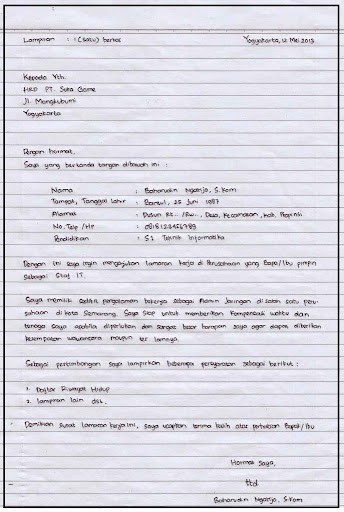 Lampiran : 1 (satu) berkas Yogyakarta, 12 Mei 2013
Kepada Yth.
HRD PT. Suka Game
Jl. Mangkubumi
Yogyakarta
Dengan hormat,
Saya yang bertanda tangan dibawah ini :
Nama : Baharudin Ngatijo, S.Kom
Tempat, Tanggal Lahir : Bantul, 25 Juni 1987
Alamat : Dusun Rt.. /Rw.., Desa, Kecamatan, Kab. Propinsi
No. Telp /Hp : 0818123456789
Pendidikan : S1 Teknik Informatika
Dengan ini saya ingin mengajukan lamaran kerja di Perusahaan yang Bapa/Ibu pimpin
Sebagai Staf IT.
Saya memiliki sedikit pengalaman bekerja sebagai Admin Jaringan di salah satu peru-
sahaan di kota Semarang. Saya siap untuk memberikan kompensasi waktu dan
tenaga saya apabila diperlukan dan sangat besar harapan saya agar dapat diberikan
kesempatan wawancara maupun tes lainnya.
Sebagai pertimbangan saya lampirkan beberapa persyaratan sebagai berikut :
1. Daftar Riwayat Hidup
2. Lampiran lain dst.
Demikian surat lamaran kerja ini, saya ucapkan terima kasih atas perhatian Bapak/Ibu
Hormat Saya,
ttd
Baharudin Ngatijo, S.Kom